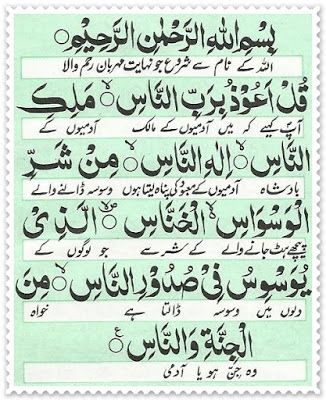 بِسْمِ اللهِ الرَّحْمٰنِ الرَّحِيْمِ ○
اللہ کے نام سے شروع جو نہایت مہربان رحم والا
قُلْ اَعُوْذُ بِرَبِّ النَّاسِ ○ مَلِكِ
آپ کہیے کہ میں آدمیوں کے مالک آدمیوں کے
النَّاسِ ○ اِلٰهِ النَّاسِ ○ مِنْ شَرِّ
بادشاہ آدمیوں کے معبود کی پناہ لیتا ہوں وسوسہ ڈالنے والے
الْوَسْوَاسِ الْخَنَّاسِ ○ الَّذِيْ
پیچھے ہٹ جانے والے کے شر سے جو لوگوں کے
يُوَسْوِسُ فِيْ صُدُوْرِ النَّاسِ ○ مِنَ
دلوں میں وسوسہ ڈالتا ہے خواہ
الْجِنَّةِ وَالنَّاسِ ○ ع
وہ جن ہو یا آدمی